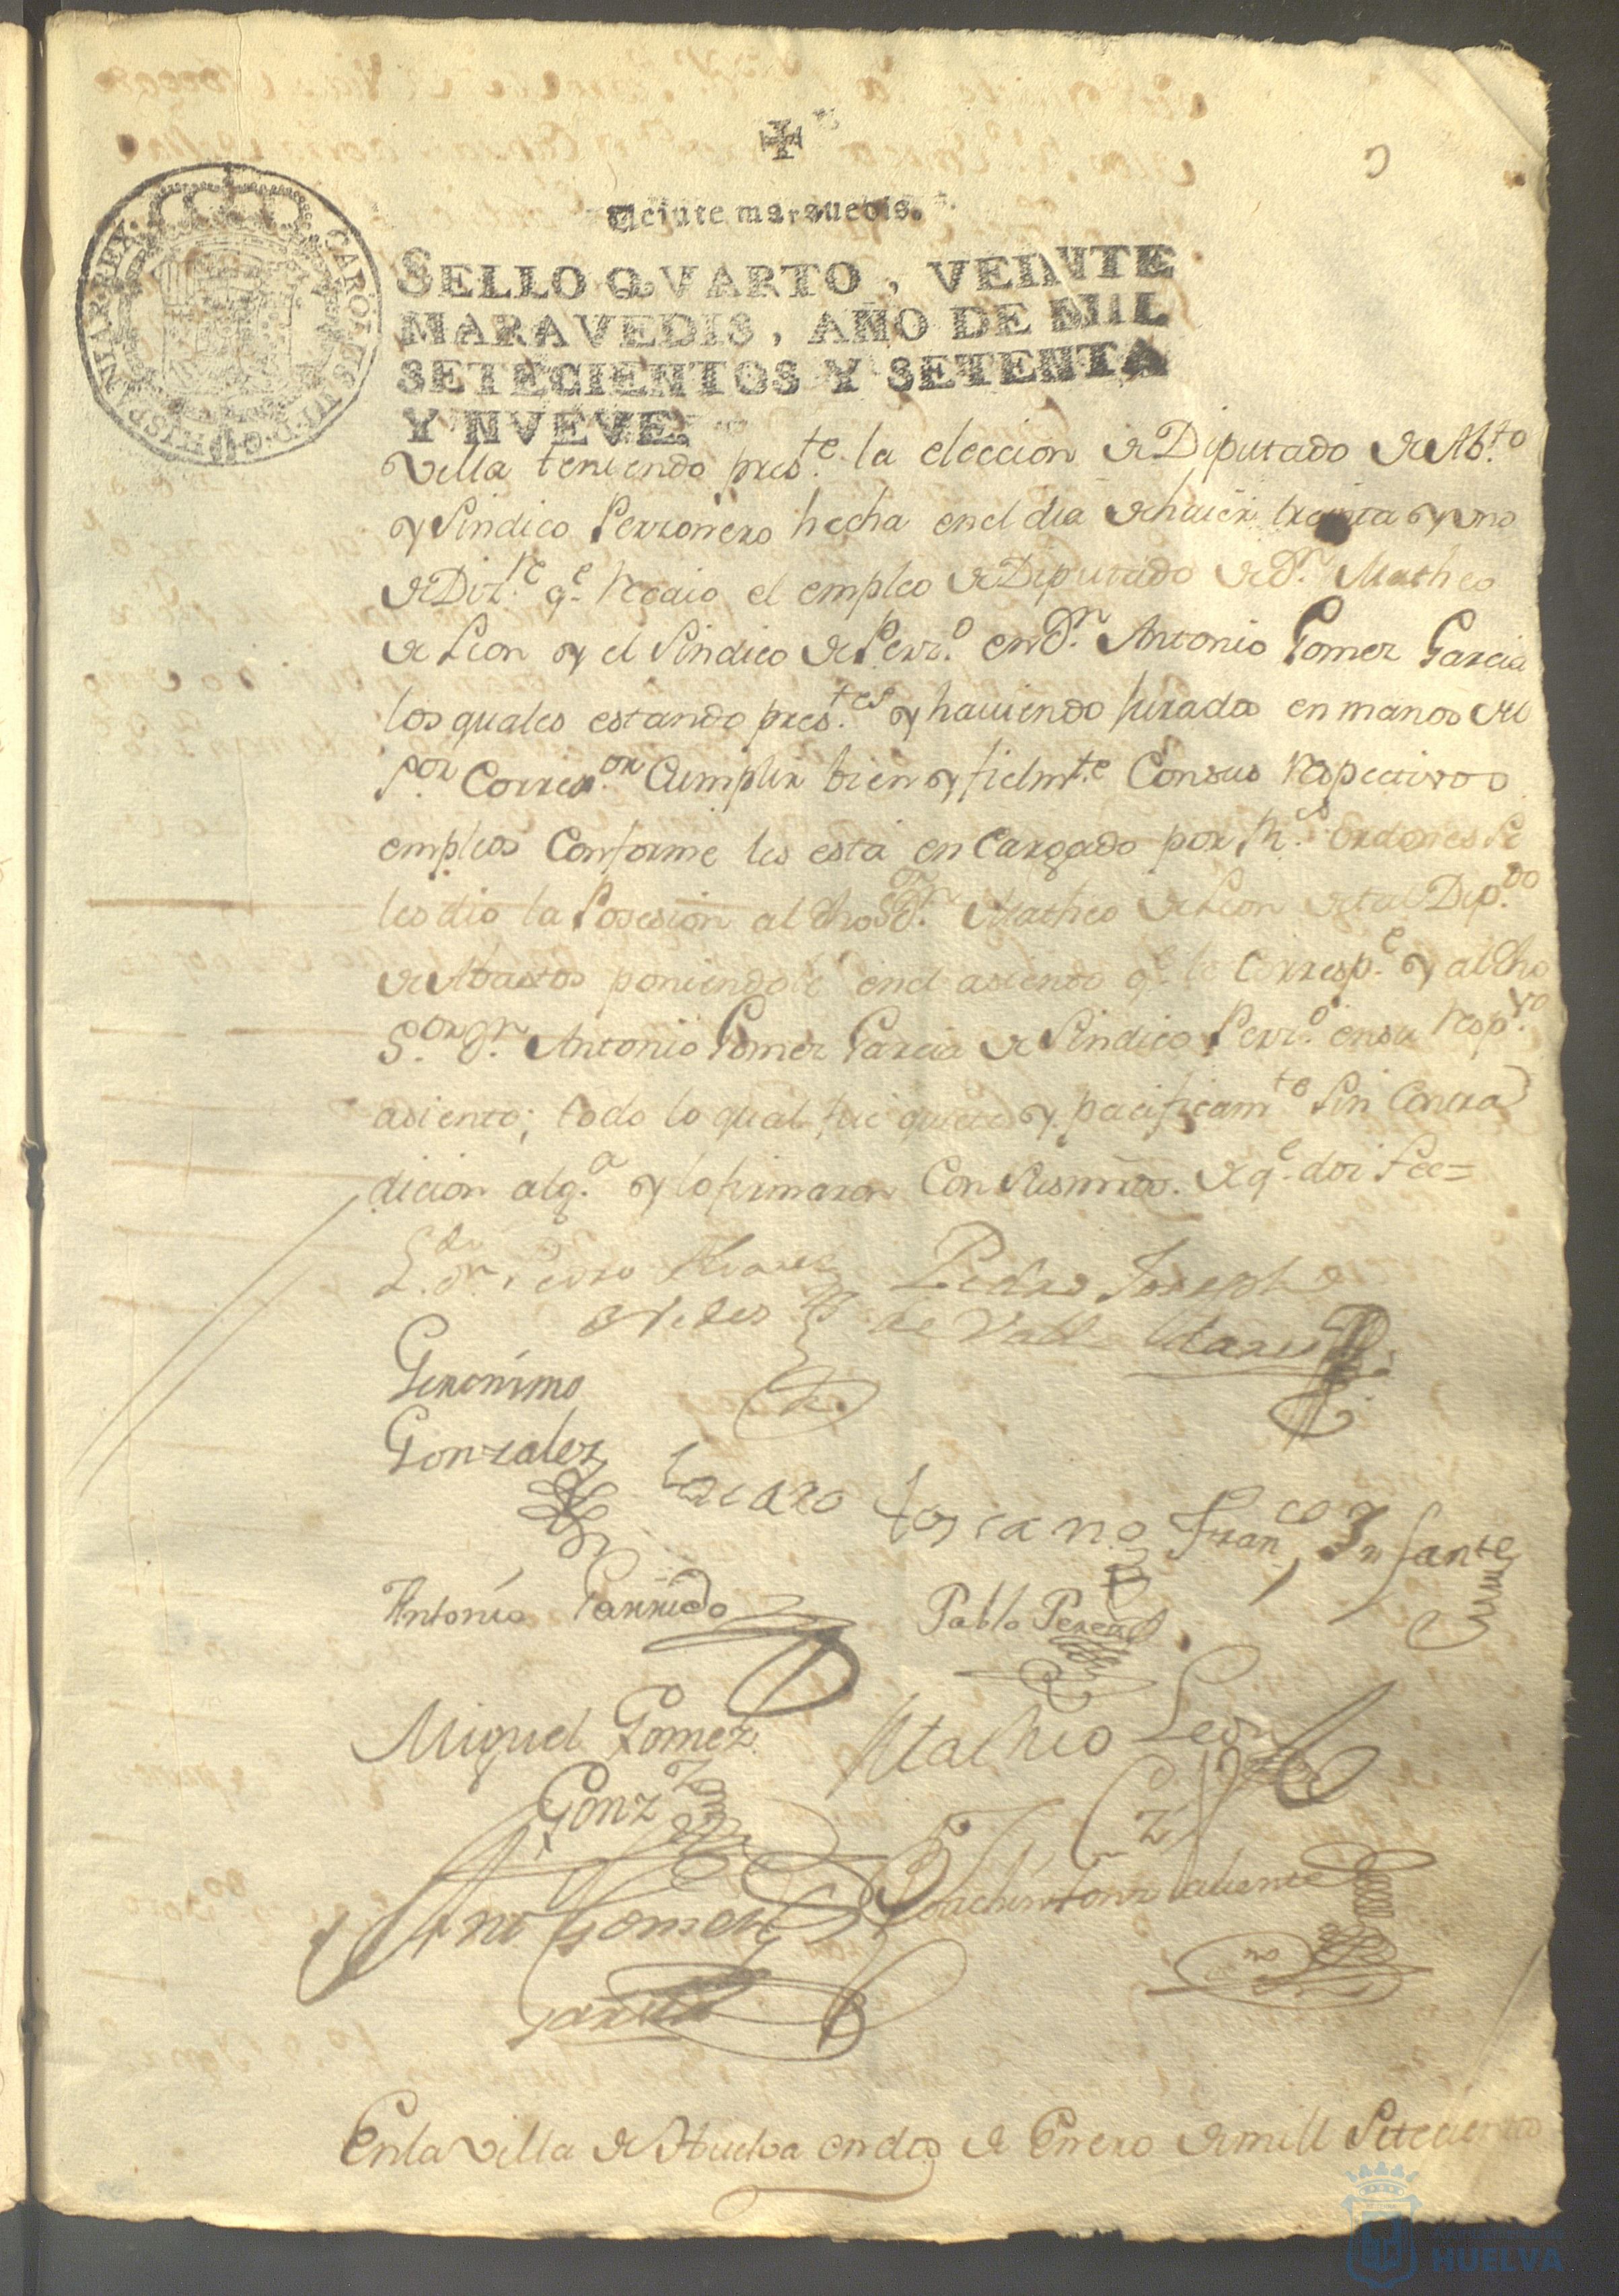 Veinte marauedis.
SELLO QVARTO, VEINTE
MARAVEDIS, AÑO DE MIL
SETECIENTOS Y SETENTA
Y NVEVE.
CAROLUS III D G HISPANIAR REX
Villa teniendo pres.te la eleccion de Diputado de Ab.to
y Sindico Perzonero hecha en el dia de haier treinta y uno
de Diz.re q.e recaio el empleo de Diputado de Dn. Matheo
de Leon y el Sindico de Perz.o en Dn. Antonio Gomez Garcia
los quales estando pres.tes y haviendo jurado en manos del
S.or Correx.or Cumplir bien y fielmte Con sus respectivos
empleos Conforme les está en Cargado por Rs. ordenes se
les dio la Posesion al dho S.or Dn. Matheo de Leon de tal Dip.do
de Abastos poniendole en el asiento q.e le Corresp.e y al dho
S.or Dn. Antonio Gomez Garcia de Sindico Perz.o en su resp.vo
asiento; todo lo qual fue quieta y pacificam.te Sin Contra
dicion alg.a y lo firmaron Con Susmrds. de q.e doi fee=
L.do Dn. Pedro Alvarez
Pedro Joseph
de Valle
Geronimo
Gonzalez
Lazaro toscano
Fran.co Infante
Antonio Garrido
Pablo Perez
Miguel Gomez
Gonz.z
Matheo Leon
Ant.o Gomez
Garcia
En la Villa de Huelva en dos de Enero de mill Setecientos
HUELVA